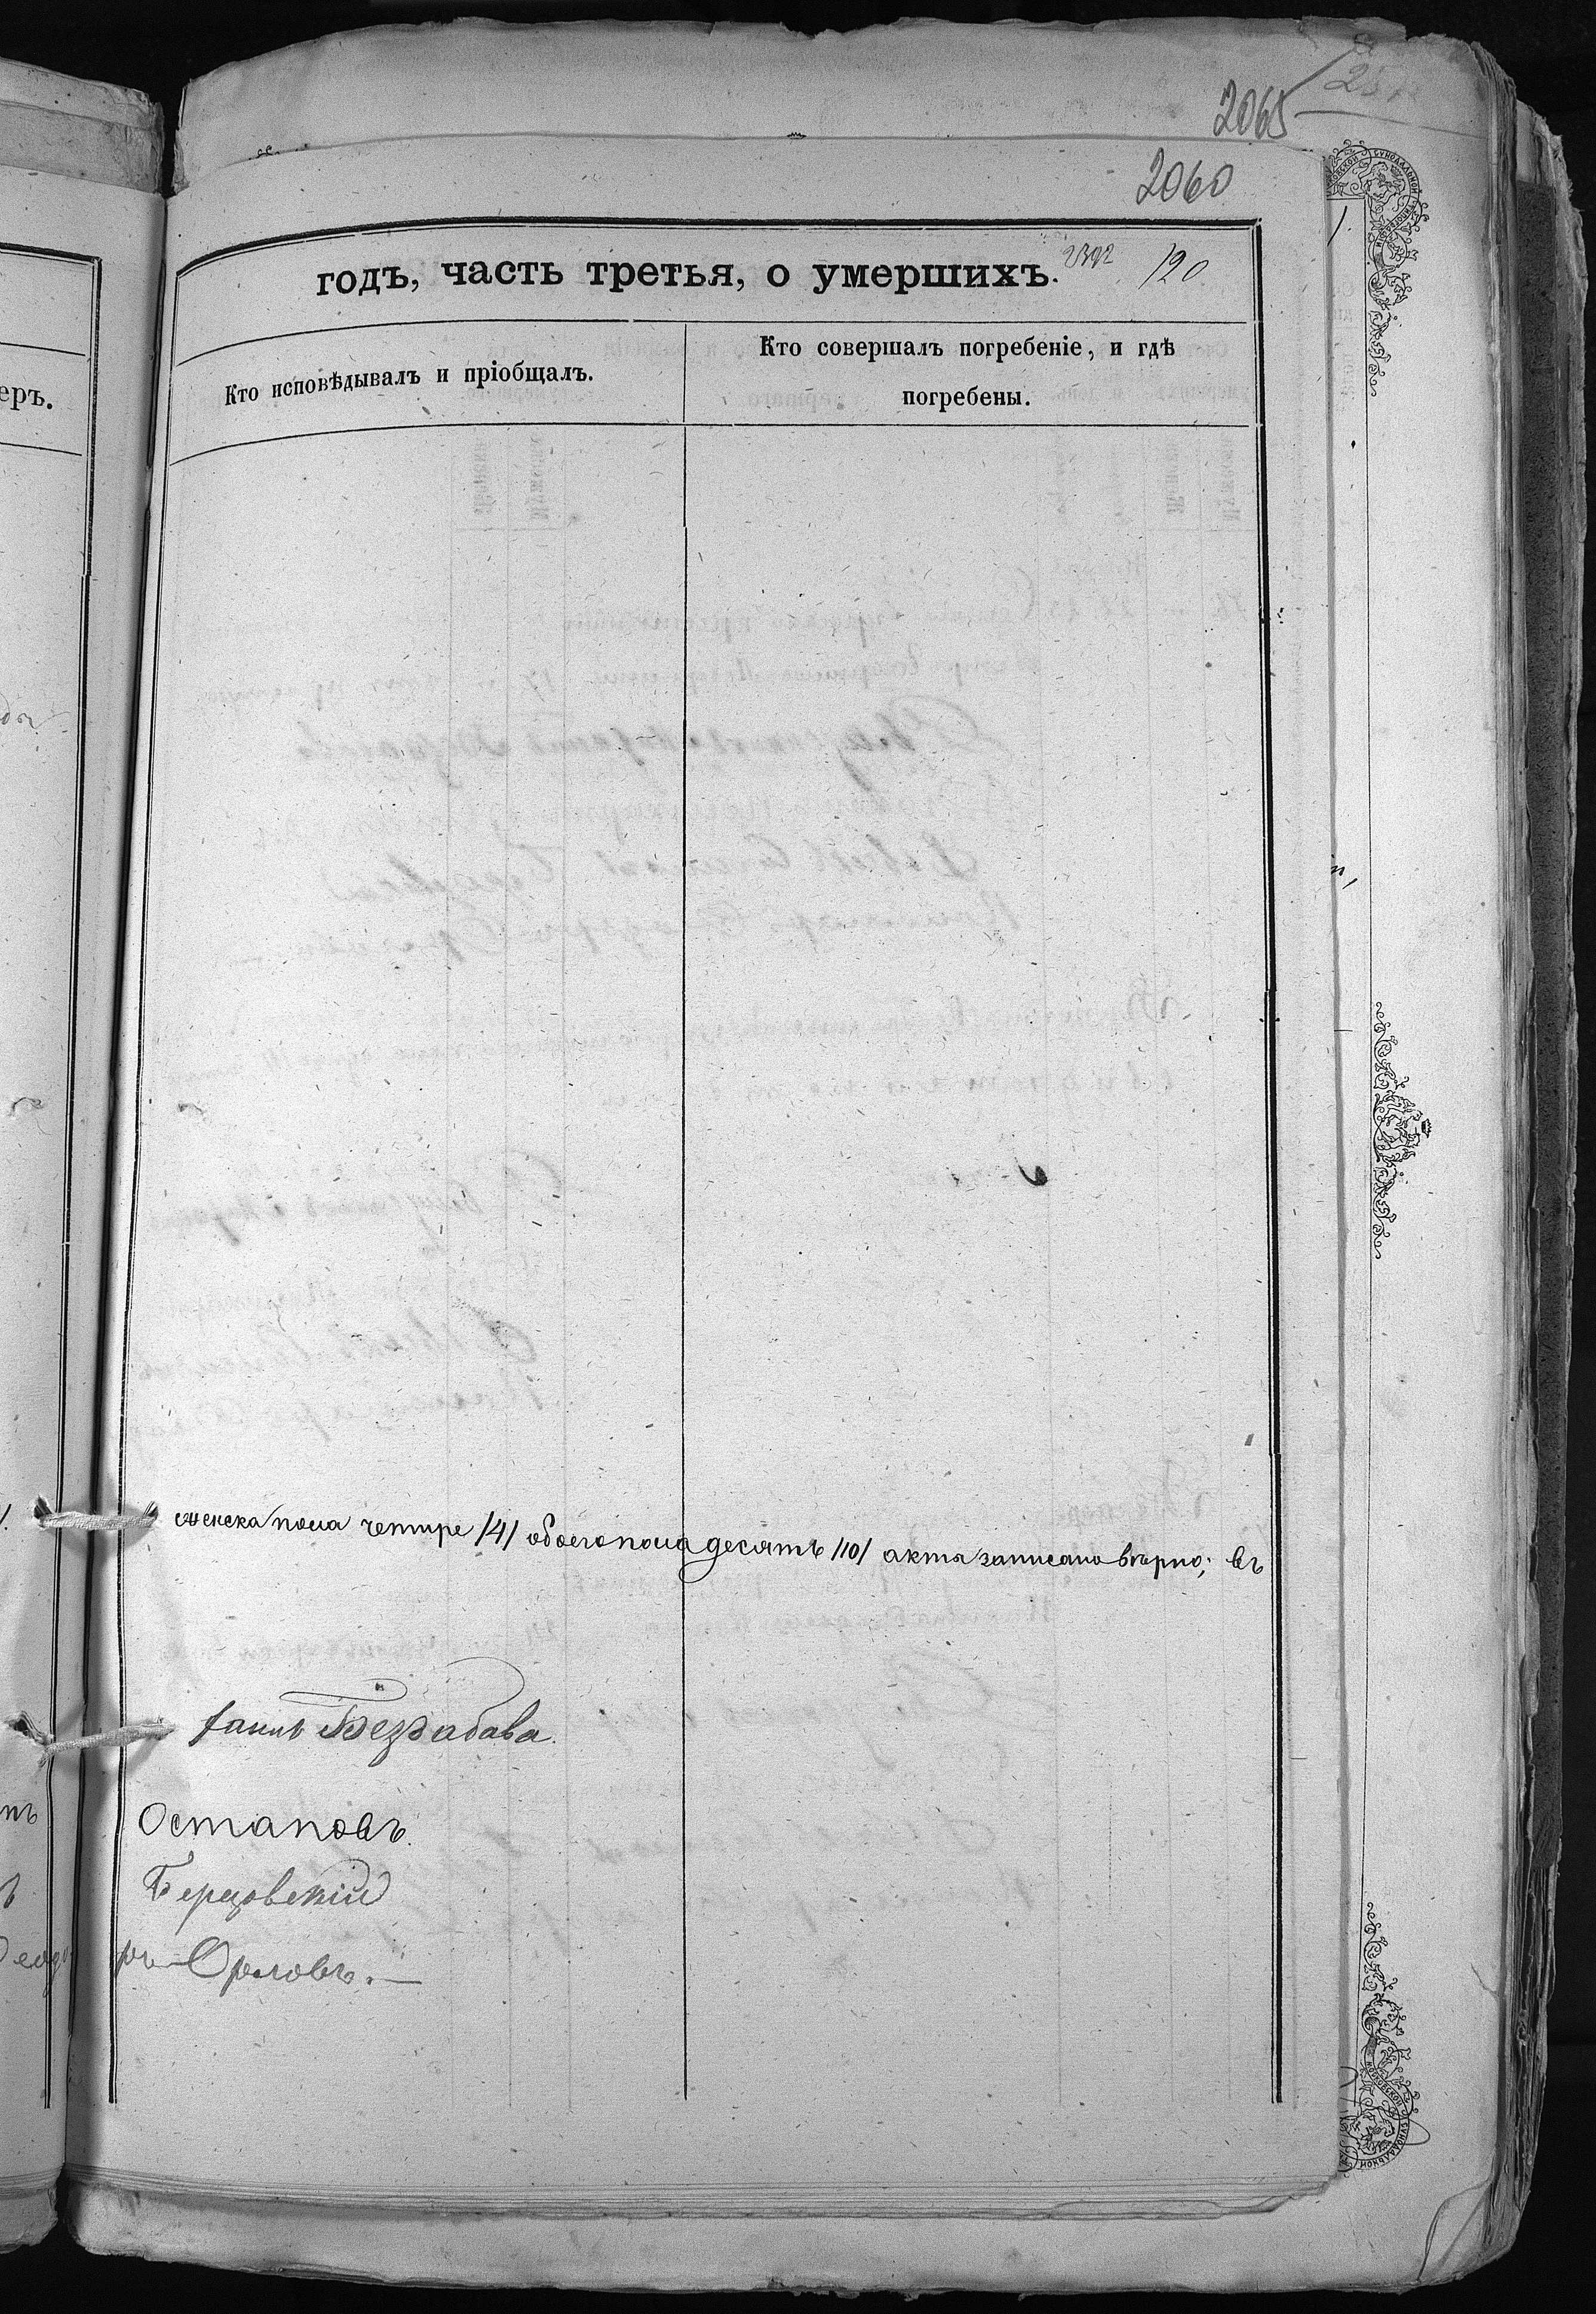 2065
2060
годъ, часть третья, о умершихъ.
120
Кто исповѣдывалъ и пріобщалъ.
Кто совершалъ погребеніе, и гдѣ
погребены.
еръ.
женска пола четыре /4/ обоего пола десять /10/ актъ записано вѣрно; въ
Іаннъ Безрабава.
Остаповъ.
Берцовскій
ръ Орловъ.—